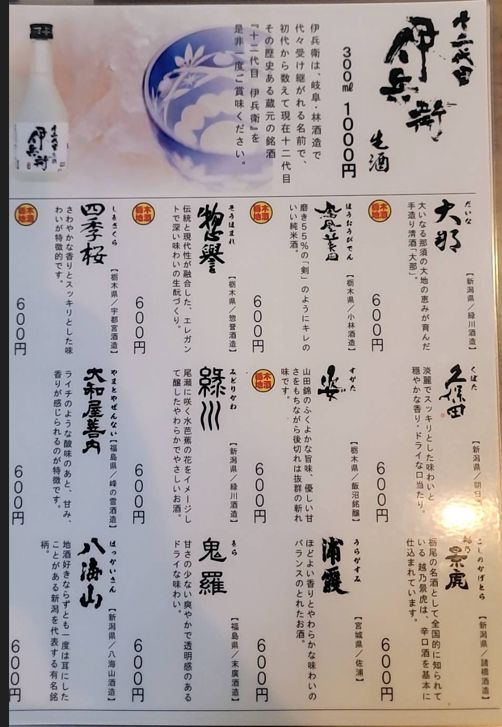 十二代目
伊兵衛
生酒
300㎖ 1000円
伊兵衛は、岐阜・林酒造で
代々受け継がれる名前で、
初代から数えて現在十二代目
その歴史ある蔵元の銘酒
『十二代目 伊兵衛』を
是非一度ご賞味ください。
十二代目
伊兵衛
だいな
大那
【新潟県／緑川酒造】
大いなる那須の大地の恵みが育んだ
手造り清酒「大那」。
栃木地酒
600円
ほうおうびでん
鳳凰美田
【栃木県／小林酒造】
磨き55%の「剣」のようにキレの
いい純米酒。
栃木地酒
600円
そうほまれ
惣誉
【栃木県／惣誉酒造】
伝統と現代性が融合した、エレガン
トで深い味わいの生酛づくり。
栃木地酒
600円
しきさくら
四季桜
【栃木県／宇都宮酒造】
さわやかな香りとスッキリとした味
わいが特徴的です。
栃木地酒
600円
くぼた
久保田
【新潟県／朝日
淡麗でスッキリとした味わいと
穏やかな香り・ドライな口当たり。
600円
すがた
姿
【栃木県／飯沼銘醸】
山田錦のふくよかな旨味、優しい甘
さをもちながら後切れは抜群の斬れ
味です。
栃木地酒
600円
みどりかわ
緑川
【新潟県／緑川酒造】
尾瀬に咲く水芭蕉の花をイメージし
て醸したやわらかでやさしいお酒。
600円
やまとやぜんない
大和屋善内
【福島県／峰の雪酒造】
ライチのような酸味のあと、甘み、
香りが感じられるのが特徴です。
600円
こしのかげとら
越乃景虎
【新潟県／諸橋酒造】
栃尾の名酒として全国的に知られて
いる越乃景虎は、辛口酒を基本に
仕込まれています。
600円
うらがすみ
浦霞
【宮城県／佐浦】
ほどよい香りとやわらかな味わいの
バランスのとれたお酒。
600円
きら
鬼羅
【福島県／末廣酒造】
甘さの少ない爽やかで透明感のある
ドライな味わい。
600円
はっかいさん
八海山
【新潟県／八海山酒造】
地酒好きならずとも一度は耳にした
ことがある新潟を代表する有名銘
柄。
600円